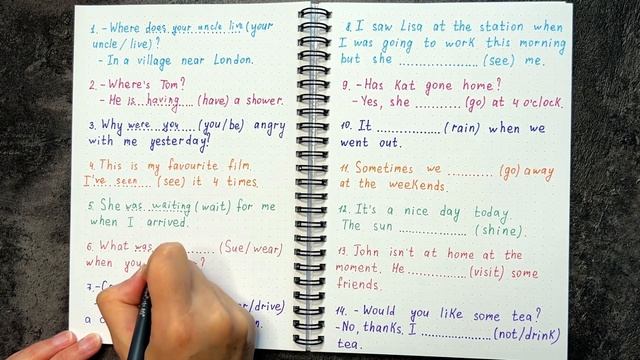 1. - Where does your uncle live (your
uncle / live)?
- In a village near London.
2. - Where's Tom?
- He is having (have) a shower.
3. Why were you (you/be) angry
with me yesterday?
4. This is my favourite film.
I've seen (see) it 4 times.
5. She was waiting (wait) for me
when I arrived.
6. What was .......... (Sue/wear)
when you ?
7. -
/drive)
a
8. I saw Lisa at the station when
I was going to work this morning
but she .................. (see) me.
9. - Has Kat gone home?
- Yes, she .......... (go) at 4 o'clock.
10. It .............. (rain) when we
went out.
11. Sometimes we .......... (go) away
at the weekends.
12. It's a nice day today.
The sun ............ (shine).
13. John isn't at home at the
moment. He ............ (visit) some
friends.
14. - Would you like some tea?
- No, thanks. I ................ (not/drink)
tea.